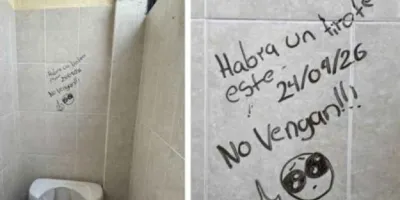 Habra un tirote
este
24/09/26
No Vengan!!!
Habra un tirote
este
24/09/26
No Vengan!!!